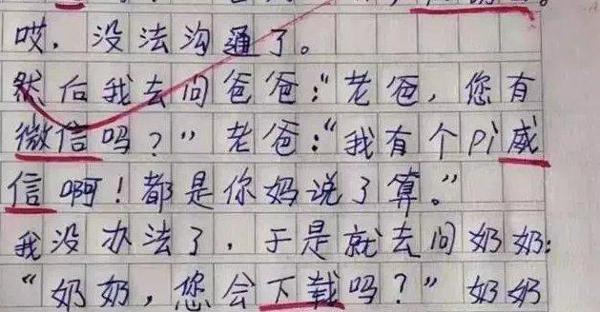 哎，没法沟通了。
然后我去问爸爸：“老爸，您有
微信吗？”老爸：“我有个pi威
信啊！都是你妈说了算。”
我没办法了，于是就去问奶奶：
“奶奶，您会下载吗？”奶奶